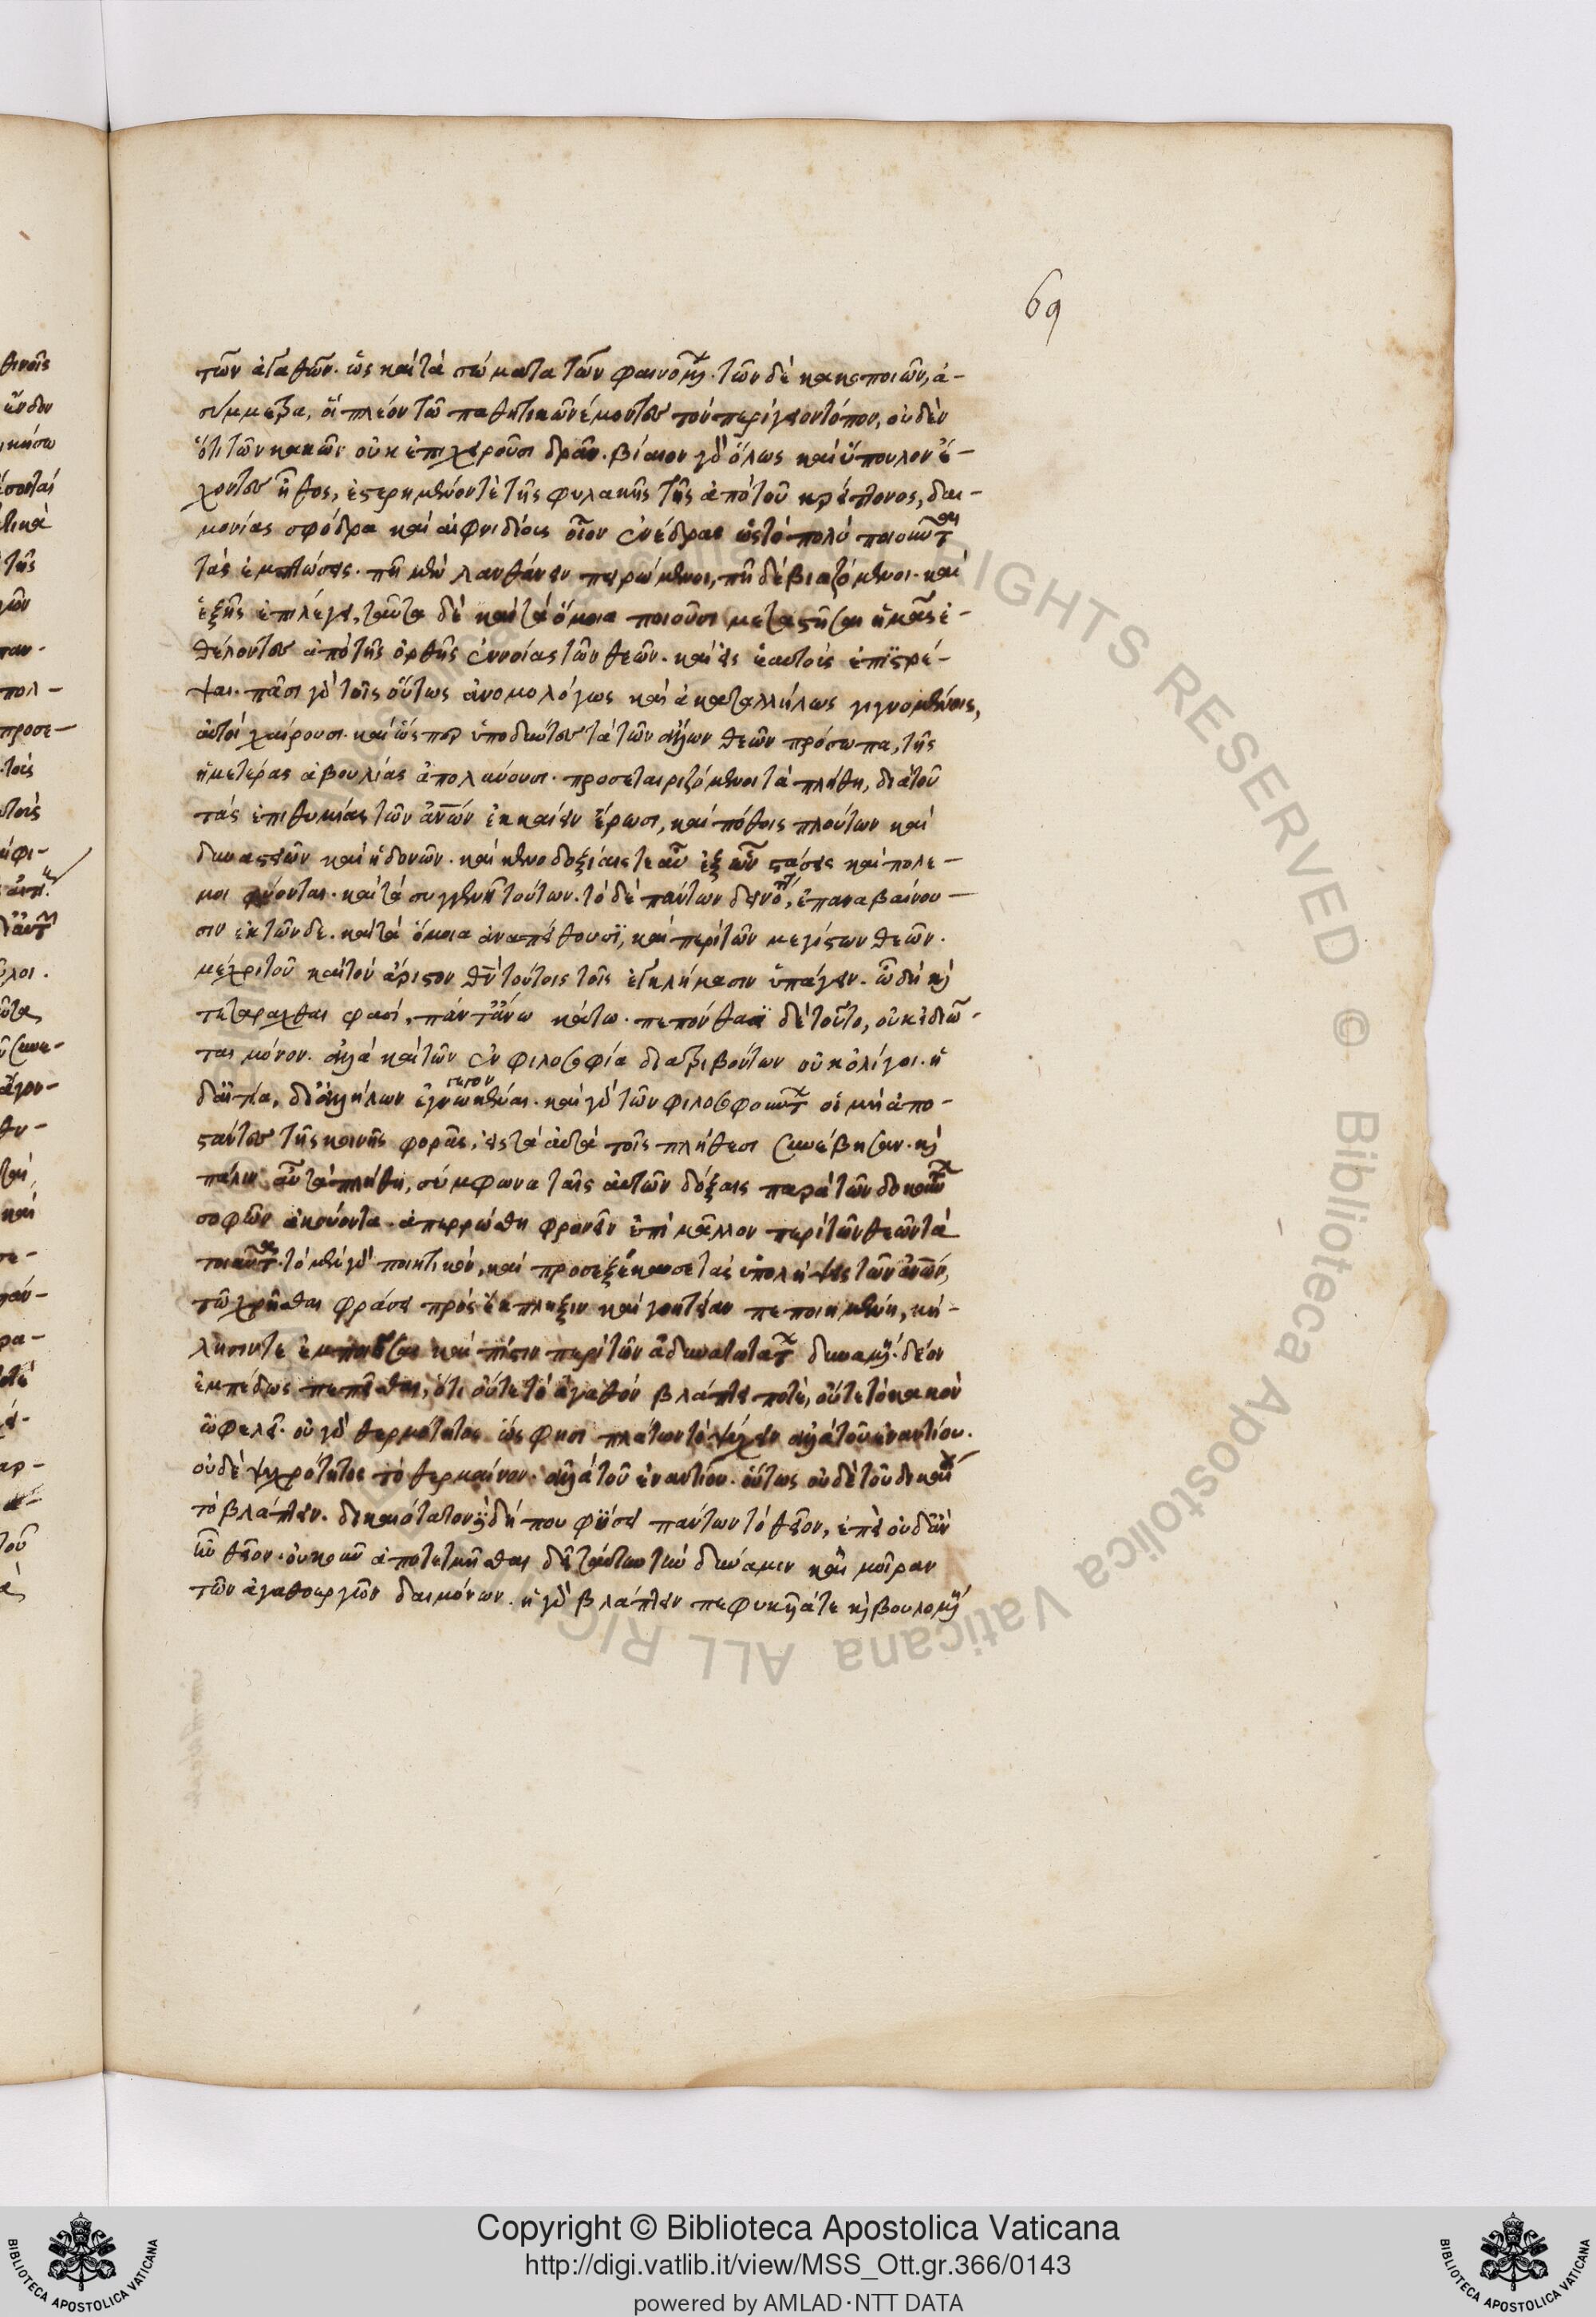 69
τῶν ἀγαθῶν. ὡς καὶ τὰ σώματα τῶν φαινομένων. τῶν δὲ κακοποιῶν, ἀ-
σύμμετρα, οἳ πλέον τῶ παθητικῶ νέμοντες τὸν περίγειον τόπον, οὐδὲν
ὅτι τῶν κακῶν οὐκ ἐπιχειροῦσι δρᾶν. βίαιον γὰρ ὅλως καὶ ὕπουλον ἔ-
χοντες ἦθος, ἐστερημένον τὲ τῆς φυλακῆς τῆς ἀπὸ τοῦ κρείττονος, δαι-
μονίας σφόδρα καὶ αἰφνιδίους οἷον ἐνέδρας ὡς τὸ πολὺ ποιοῦνται
τὰς ἐμπτώσεις. πῆ μὲν λανθάνειν πειρώμενοι, πῆ δὲ βιαζόμενοι. καὶ
ἑξῆς ἐπιλέγει, ταῦτα δὲ καὶ τὰ ὅμοια ποιοῦσι μεταστῆσαι ἡμᾶς ἐ-
θέλοντες ἀπὸ τῆς ὀρθῆς ἐννοίας τῶν θεῶν. καὶ εἰς ἑαυτοὺς ἐπιστρέ-
ψαι. πᾶσι γὰρ τοῖς οὕτως ἀνομολόγως καὶ ἀκαταλλήλως γιγνομένοις,
αὐτοὶ χαίρουσι. καὶ ὥσπερ ὑποδύντες τὰ τῶν ἄλλων θεῶν πρόσωπα, τῆς
ἡμετέρας ἀβουλίας ἀπολαύουσι. προσεταιριζόμενοι τὰ πλήθη, διὰ τοῦ
τὰς ἐπιθυμίας τῶν ἀνων ἐκκαίειν ἔρωσι, καὶ πόθοις πλούτων καὶ
δυναστειῶν καὶ ἡδονῶν. καὶ κενοδοξίαις τε αὖ ἐξ ὧν στάσεις καὶ πολε-
μοι φύονται. καὶ τὰ συγγενῆ τούτων. τὸ δὲ πάντων δεινότατον, ἐπαναβαίνου-
σιν ἐκ τῶνδε. καὶ τὰ ὅμοια ἀναπείθουσι, καὶ περὶ τῶν μεγίστων θεῶν.
μέχρι τοῦ καὶ τὸν ἄριστον θν τούτοις τοῖς ἐγκλήμασιν ὑπάγειν. ᾧ δὴ καὶ
τεταράχθαι φασί, πάντα ἄνω κάτω. πεπόνθασι δὲ τοῦτο, οὐκ ἰδιῶ-
ται μόνον. ἀλλὰ καὶ τῶν ἐν φιλοσοφία διατριβόντων οὐκ ὀλίγοι. ἡ
δὲ αἰτία, δι' ἀλλήλων
καὶ γὰρ τῶν φιλοσοφούντων οἱ μὴ ἀπο-
στάντες τῆς κοινῆς φορᾶς, εἰς τὰ αὐτὰ τοῖς πλήθεσι συνέβησαν. καὶ
πάλιν αὖ τὰ πλήθη, σύμφωνα ταῖς αὐτῶν δόξαις παρὰ τῶν δοκούντων
σοφῶν ἀκούοντα. ἐπερρώσθη φρονεῖν ἔτι μᾶλλον περὶ τῶν θεῶν τὰ
τοιαῦτα. τὸ μὲν γὰρ ποιητικὸν, καὶ προσεξέκαυσε τὰς ὑπολήψεις τῶν ἀνων,
τῶ χρῆσθαι φράσει πρὸς ἔκπληξιν καὶ γοητείαν πεποιημένη, κή-
λησίν τε ἐμποιῆσαι καὶ πίστιν περὶ τῶν ἀδυνατωτάτων δυναμένη. δέον
ἐμπέδως πεπεῖσθαι, ὅτι οὔτε τὸ ἀγαθὸν βλάπτει ποτὲ, οὔτε τὸ κακὸν
ὠφελεῖ. οὐ γὰρ θερμότητος ὥς φησι πλάτων τὸ ψύχειν ἀλλὰ τοῦ ἐναντίου.
οὐδὲ ψυχρότητος τὸ θερμαίνειν. ἀλλὰ τοῦ ἐναντίου. οὕτως οὐδὲ τοῦ δικαίου
τὸ βλάπτειν. δικαιότατον δὲ δή που φύσει πάντων τὸ θεῖον, ἐπεὶ οὐδ' ἂν
ἦν θεῖον. οὐκοῦν ἀποτετμῆσθαι δεῖ ταύτην τὴν δύναμιν καὶ μοῖραν
τῶν ἀγαθοεργῶν δαιμόνων. ἡ γὰρ βλάπτειν πεφυκυῖά τε καὶ βουλομένη
Copyright © Biblioteca Apostolica Vaticana
http://digi.vatlib.it/view/MSS_Ott.gr.366/0143
powered by AMLAD·NTT DATA